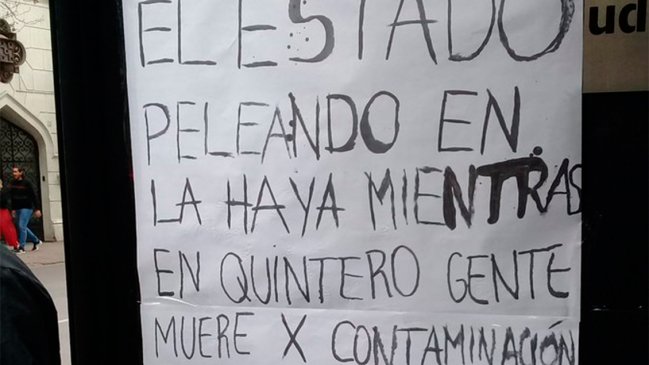 EL ESTADO
PELEANDO EN
LA HAYA MIENTRAS
EN QUINTERO GENTE
MUERE X CONTAMINACIÓN
ud